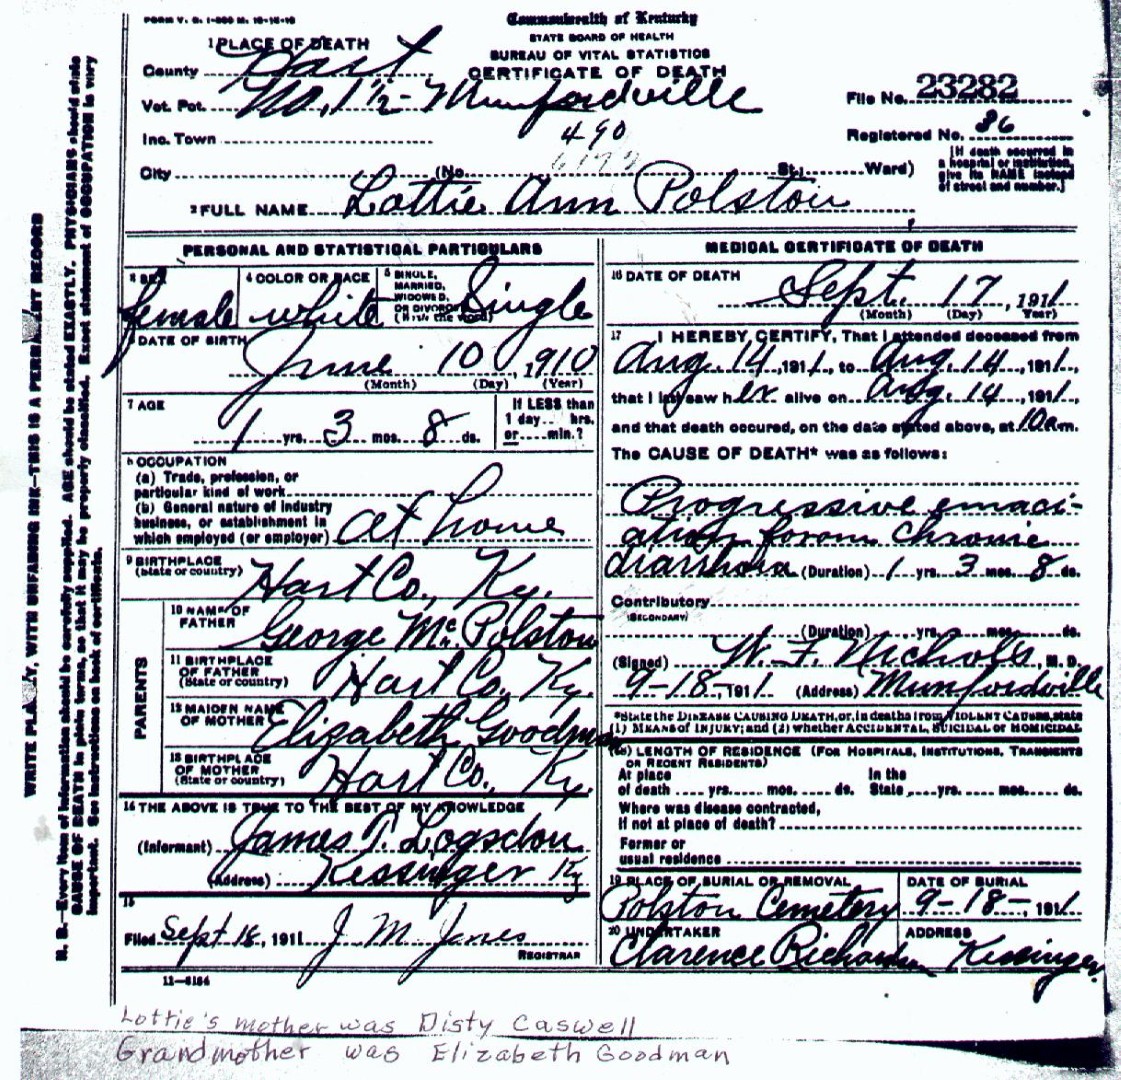 FORM V. S. 1-500 M. 12-15-10
Commonwealth of Kentucky
STATE BOARD OF HEALTH
BUREAU OF VITAL STATISTICS
CERTIFICATE OF DEATH
1 PLACE OF DEATH
County Hart
Vot. Pct. No. 1 1/2 - Munfordville
File No. 23282
Inc. Town
490
Registered No. 86
City (No. St.; Ward)
[If death occurred in
a hospital or institution,
give its NAME instead
of street and number.]
2 FULL NAME Lottie Ann Polston
PERSONAL AND STATISTICAL PARTICULARS
3 SEX female
4 COLOR OR RACE white
5 SINGLE, MARRIED, WIDOWED, OR DIVORCED (Write the word) Single
6 DATE OF BIRTH
June 10, 1910
(Month) (Day) (Year)
7 AGE
1 yrs. 3 mos. 8 ds.
If LESS than
1 day hrs.
or min.?
8 OCCUPATION
(a) Trade, profession, or
particular kind of work
(b) General nature of industry
business, or establishment in
which employed (or employer) at home
9 BIRTHPLACE
(State or country) Hart Co., Ky.
PARENTS
10 NAME OF
FATHER George Mc. Polston
11 BIRTHPLACE
OF FATHER
(State or country) Hart Co., Ky.
12 MAIDEN NAME
OF MOTHER Elizabeth Goodman
13 BIRTHPLACE
OF MOTHER
(State or country) Hart Co., Ky.
14 THE ABOVE IS TRUE TO THE BEST OF MY KNOWLEDGE
(Informant) James T. Logsdon
(Address) Kessinger Ky
15
Filed Sept 18, 1911 J M Jones
REGISTRAR
11-5184
MEDICAL CERTIFICATE OF DEATH
16 DATE OF DEATH
Sept. 17, 1911
(Month) (Day) Year)
17 I HEREBY CERTIFY, That I attended deceased from
Aug. 14, 1911, to Aug. 14, 1911,
that I last saw her alive on Aug. 14, 1911,
and that death occured, on the date stated above, at 10am.
The CAUSE OF DEATH* was as follows:
Progressive emaci-
ation forom Chronic
diarrhoia (Duration) 1 yrs. 3 mos. 8 ds.
Contributory
(SECONDARY)
(Duration) yrs. mos. ds.
(Signed) W. F. Nichols, M. D.
9-18-, 1911 (Address) Munfordville
*State the DISEASE CAUSING DEATH, or, in deaths from VIOLENT CAUSES, state
(1) MEANS of INJURY; and (2) whether ACCIDENTAL, SUICIDAL or HOMICIDAL
LENGTH OF RESIDENCE (FOR HOSPITALS, INSTITUTIONS, TRANSIENTS
OR RECENT RESIDENTS)
At place In the
of death yrs. mos. ds. State yrs. mos. ds.
Where was disease contracted,
If not at place of death?
Former or
usual residence
19 PLACE OF BURIAL OR REMOVAL
Polston Cemetery
DATE OF BURIAL
9-18-, 1911
20 UNDERTAKER
Clarence Richardson
ADDRESS
Kessinger.
WRITE PLAINLY, WITH UNFADING INK—THIS IS A PERMANENT RECORD
N. B.—Every item of information should be carefully supplied. AGE should be stated EXACTLY. PHYSICIANS should state
CAUSE OF DEATH in plain terms, so that it may be properly classified. Exact statement of OCCUPATION is very
important. See instructions on back of certificate.
Lottie's mother was Disty Caswell
Grandmother was Elizabeth Goodman